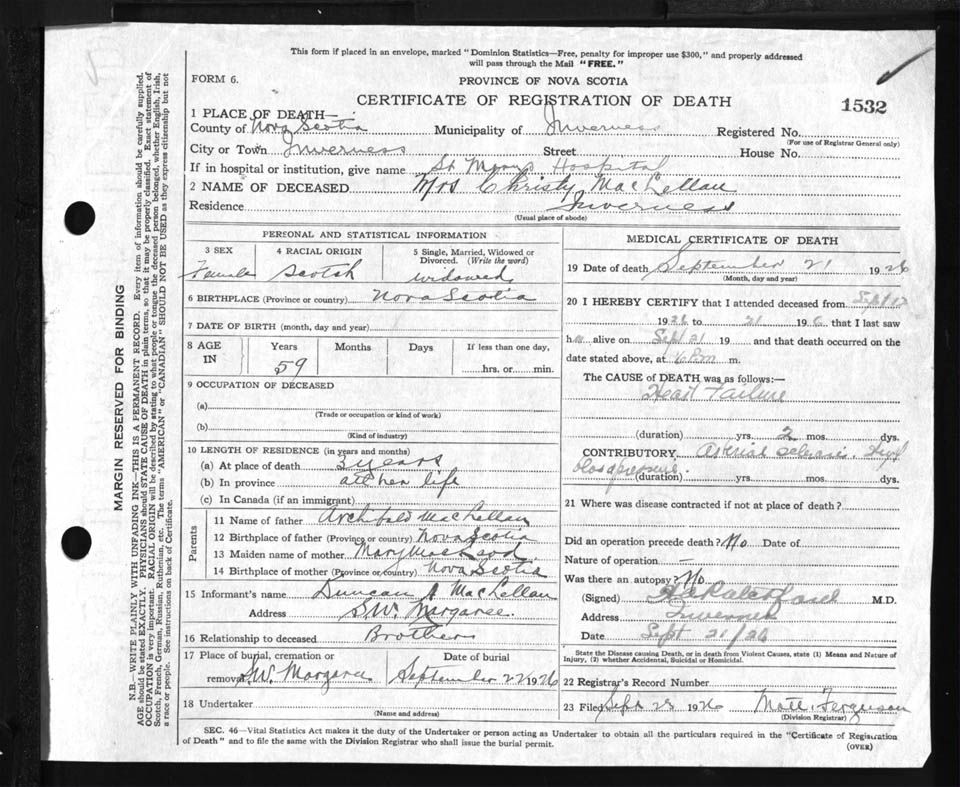 This form if placed in an envelope, marked "Dominion Statistics—Free, penalty for improper use $300," and properly addressed
will pass through the Mail "FREE."
FORM 6.
PROVINCE OF NOVA SCOTIA
CERTIFICATE OF REGISTRATION OF DEATH
1532
1 PLACE OF DEATH—
County of Nova Scotia Municipality of Inverness Registered No.
(For use of Registrar General only)
City or Town Inverness Street House No.
If in hospital or institution, give name St Marys Hospital
2 NAME OF DECEASED Mrs Christy MacLellan
Residence Inverness
(Usual place of abode)
PERSONAL AND STATISTICAL INFORMATION
3 SEX 4 RACIAL ORIGIN 5 Single, Married, Widowed or
Divorced. (Write the word)
Female Scotch widowed
6 BIRTHPLACE (Province or country) Nova Scotia
7 DATE OF BIRTH (month, day and year)
8 AGE IN Years Months Days If less than one day,
59 hrs. or min.
9 OCCUPATION OF DECEASED
(a)
(Trade or occupation or kind of work)
(b)
(Kind of industry)
10 LENGTH OF RESIDENCE (in years and months)
(a) At place of death 3 years
(b) In province all her life
(c) In Canada (if an immigrant)
Parents
11 Name of father Archibald MacLellan
12 Birthplace of father (Province or country) Nova Scotia
13 Maiden name of mother Mary MacLeod
14 Birthplace of mother (Province or country) Nova Scotia
15 Informant's name Duncan A MacLellan
Address S.W. Margaree.
16 Relationship to deceased Brother
17 Place of burial, cremation or Date of burial
removal S.W. Margaree September 22 1926
18 Undertaker
(Name and address)
MEDICAL CERTIFICATE OF DEATH
19 Date of death September 21 1926
(Month, day and year)
20 I HEREBY CERTIFY that I attended deceased from Sept 12
1926 to 21 19 6 that I last saw
her alive on Sept 21 19 and that death occurred on the
date stated above, at 6 P.m m.
The CAUSE of DEATH was as follows:—
Heart Failure
(duration) yrs. 2 mos. dys.
CONTRIBUTORY. Arterial Sclerosis. High
blood pressure.
(duration) yrs. mos. dys.
21 Where was disease contracted if not at place of death?
Did an operation precede death? No Date of
Nature of operation —
Was there an autopsy? No.
(Signed) M.D.
Address Inverness
Date Sept 21/26
State the Disease causing Death, or in death from Violent Causes, state (1) Means and Nature of
Injury, (2) whether Accidental, Suicidal or Homicidal.
22 Registrar's Record Number
23 Filed Sept 28 1926 Matt. Ferguson
(Division Registrar)
SEC. 46—Vital Statistics Act makes it the duty of the Undertaker or person acting as Undertaker to obtain all the particulars required in the "Certificate of Registration
of Death" and to file the same with the Division Registrar who shall issue the burial permit.
(OVER)
MARGIN RESERVED FOR BINDING
N.B.—WRITE PLAINLY WITH UNFADING INK—THIS IS A PERMANENT RECORD. Every item of information should be carefully supplied.
AGE should be stated EXACTLY. PHYSICIANS should STATE CAUSE OF DEATH in plain terms, so that it may be properly classified. Exact statement of
OCCUPATION is very important. RACIAL ORIGIN will be described by stating to what people or tongue the deceased person belonged, whether English, Irish,
Scotch, French, German, Russian, Ruthenian, etc. The terms "AMERICAN" or "CANADIAN" SHOULD NOT BE USED as they express citizenship but not
a race or people. See instructions on back of Certificate.